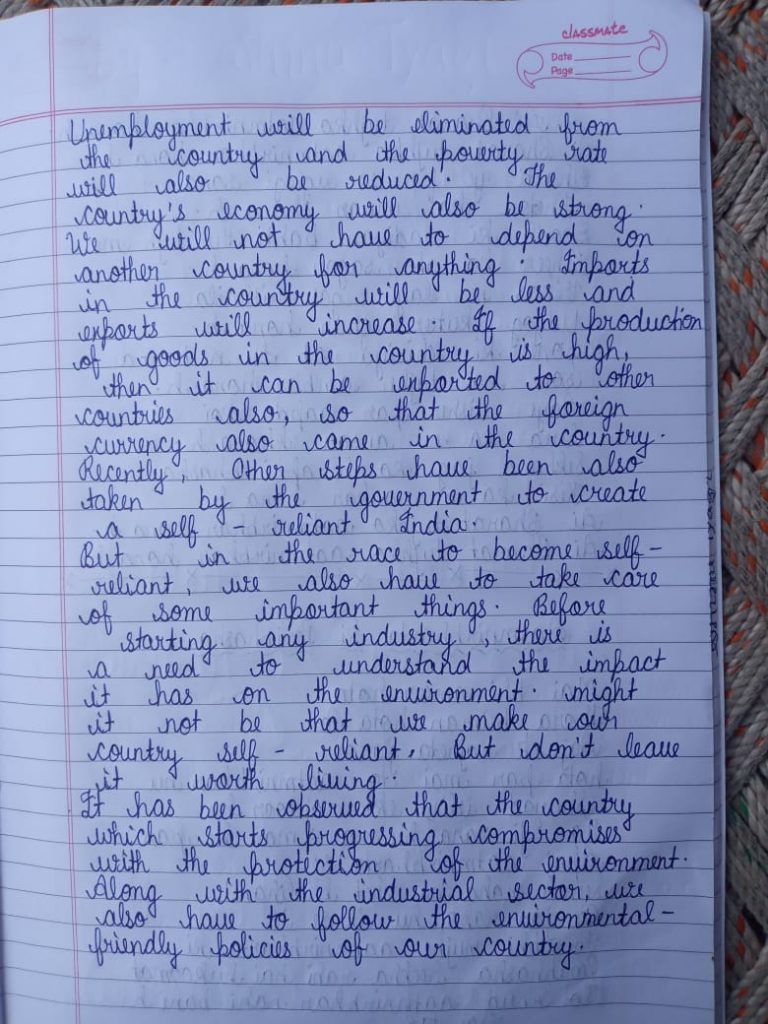 classmate
Date
Page
Unemployment will be eliminated from
the country and the poverty rate
will also be reduced. The
country's economy will also be strong.
We will not have to depend on
another country for anything. Imports
in the country will be less and
exports will increase. If the production
of goods in the country is high,
then it can be exported to other
countries also, so that the foreign
currency also came in the country.
Recently, Other steps have been also
taken by the government to create
a self - reliant India.
But in the race to become self-
reliant, we also have to take care
of some important things. Before
starting any industry, there is
a need to understand the impact
it has on the environment. might
it not be that we make our
country self - reliant, But don't leave
it worth living.
It has been observed that the country
which starts progressing compromises
with the protection of the environment.
Along with the industrial sector, we
also have to follow the environmental-
friendly policies of our country.